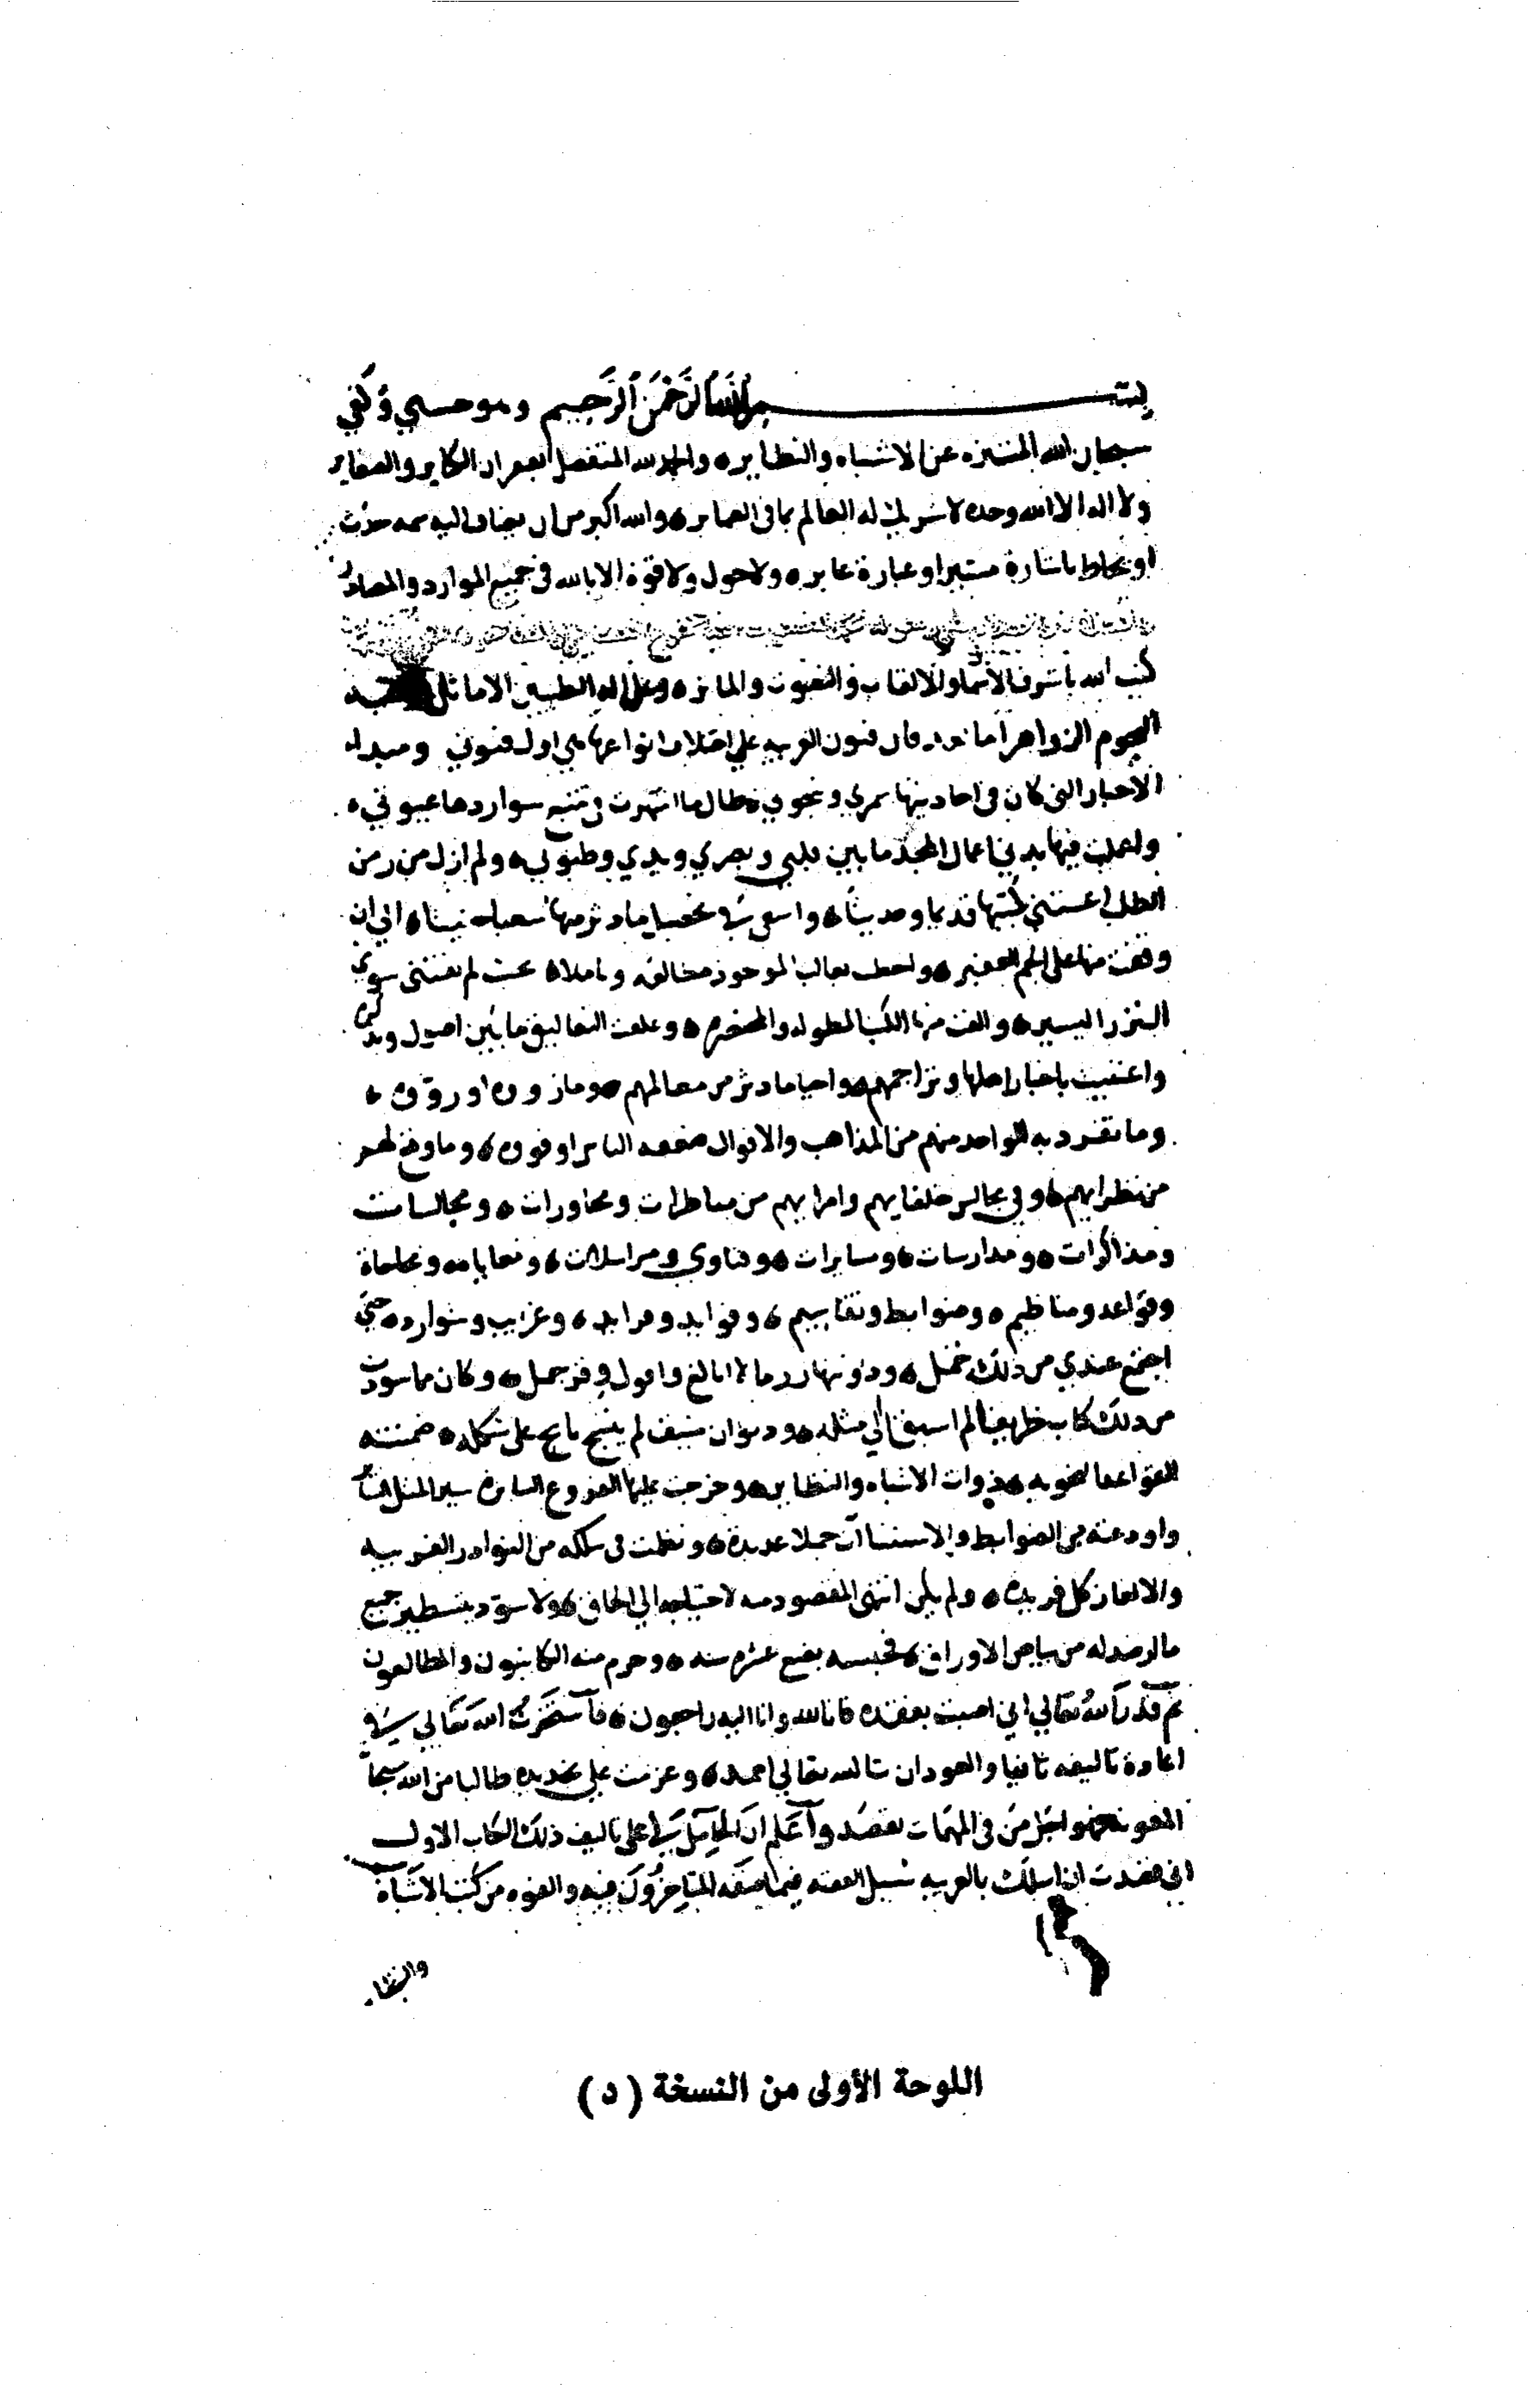 بسم الله الرحمن الرحيم وهو حسبي وكفى
سبحان الله المنزه عن الاشباه والنظاير والحمد لله المتفضل بغفران الكباير والصغاير
ولا اله الا الله وحده لا شريك له العالم بما في الضماير والله اكبر من ان يضاف اليه سمة حدث
او يحاط باشارة مشير او عبارة عابر ولا حول ولا قوة الا بالله في جميع الموارد والمصادر
كتب الله باشرف الاسما والالقاب والنعوت والماثر وعلى اله الطيبين الاماثل
النجوم الزواهر اما بعد فان فنون العربيه على اختلاف انواعها هي اول فنوني ومبدا
الاخبار التي كان في احاديثها سمري وشجوني طالما اسهرت في تتبع شواردها عيوني
واعملت فيها بدني اعمال المجد ما بين قلبي وبصري ويدي وظنوني ولم ازل من زمن
الطلب اعتني بكتبها قديما وحديثا واسعى في تحصيل ما دثر منها سعيا حثيثا الى ان
وقفت منها على الجم الغفير واحطت بغالب الموجود مطالعة وتاملا بحيث لم يفتني سوى
النزر اليسير والفت فيها الكتب المطوله والمختصره وعلقت التعاليق ما بين اصول وتذكره
واعتنيت باخبار اهلها وتراجمهم واحيا ما دثر من معالمهم وما رووه او رووه
وما تفرد به الواحد منهم من المذاهب والاقوال ضعفه الناس او قووه وما وقع لهم
من نظرايهم وفي مجالس خلفايهم وامرايهم من مناظرات ومحاورات ومجالسات
ومذاكرات ومدارسات ومسايرات وفتاوى ومراسلات ومعاياه ومحاجاة
وقواعد ومناظيم وضوابط وتقاسيم وفوايد وفرايد وغرايب وشوارد حتى
اجتمع عندي من ذلك جمل ودونتها رزما لا ابالغ واقول وقر جمل وكان مما سودت
من ذلك كتاب ظريف لم اسبق الى مثله وديوان منيف لم ينسج ناسج على شكله ضمنته
القواعد النحويه ذوات الاشباه والنظاير وخرجت عليها الفروع السايرة سير المثل الساير
واودعته من الضوابط والاستثناات جملا عديدة ونظمت في سلكه من النوادر الغريبه
والالغاز كل فريده ولم يكن انتهى المقصود منه لاحتياجه الى الحاق ولا سود بتسطير جميع
ما ارصد له من بياض الاوراق فحبسته بضع عشره سنه وحرم منه الكاتبون والمطالعون
ثم قدر الله تعالى اني اصبت بفقده فانا لله وانا اليه راجعون فاستخرت الله تعالى في
اعادة تاليفه ثانيا والعود ان شا الله تعالى احمد وعزمت على تجديده طالبا من الله سبحا
المعونة فهو اجل من في المهمات يقصد واعلم ان الحامل لي على تاليف ذلك الكتاب الاول
اني قصدت ان اسلك بالعربيه سبيل الفقه فيما صنفه المتاخرون فيه والفوه من كتب الاشباه
والنظا
اللوحة الأولى من النسخة (د)